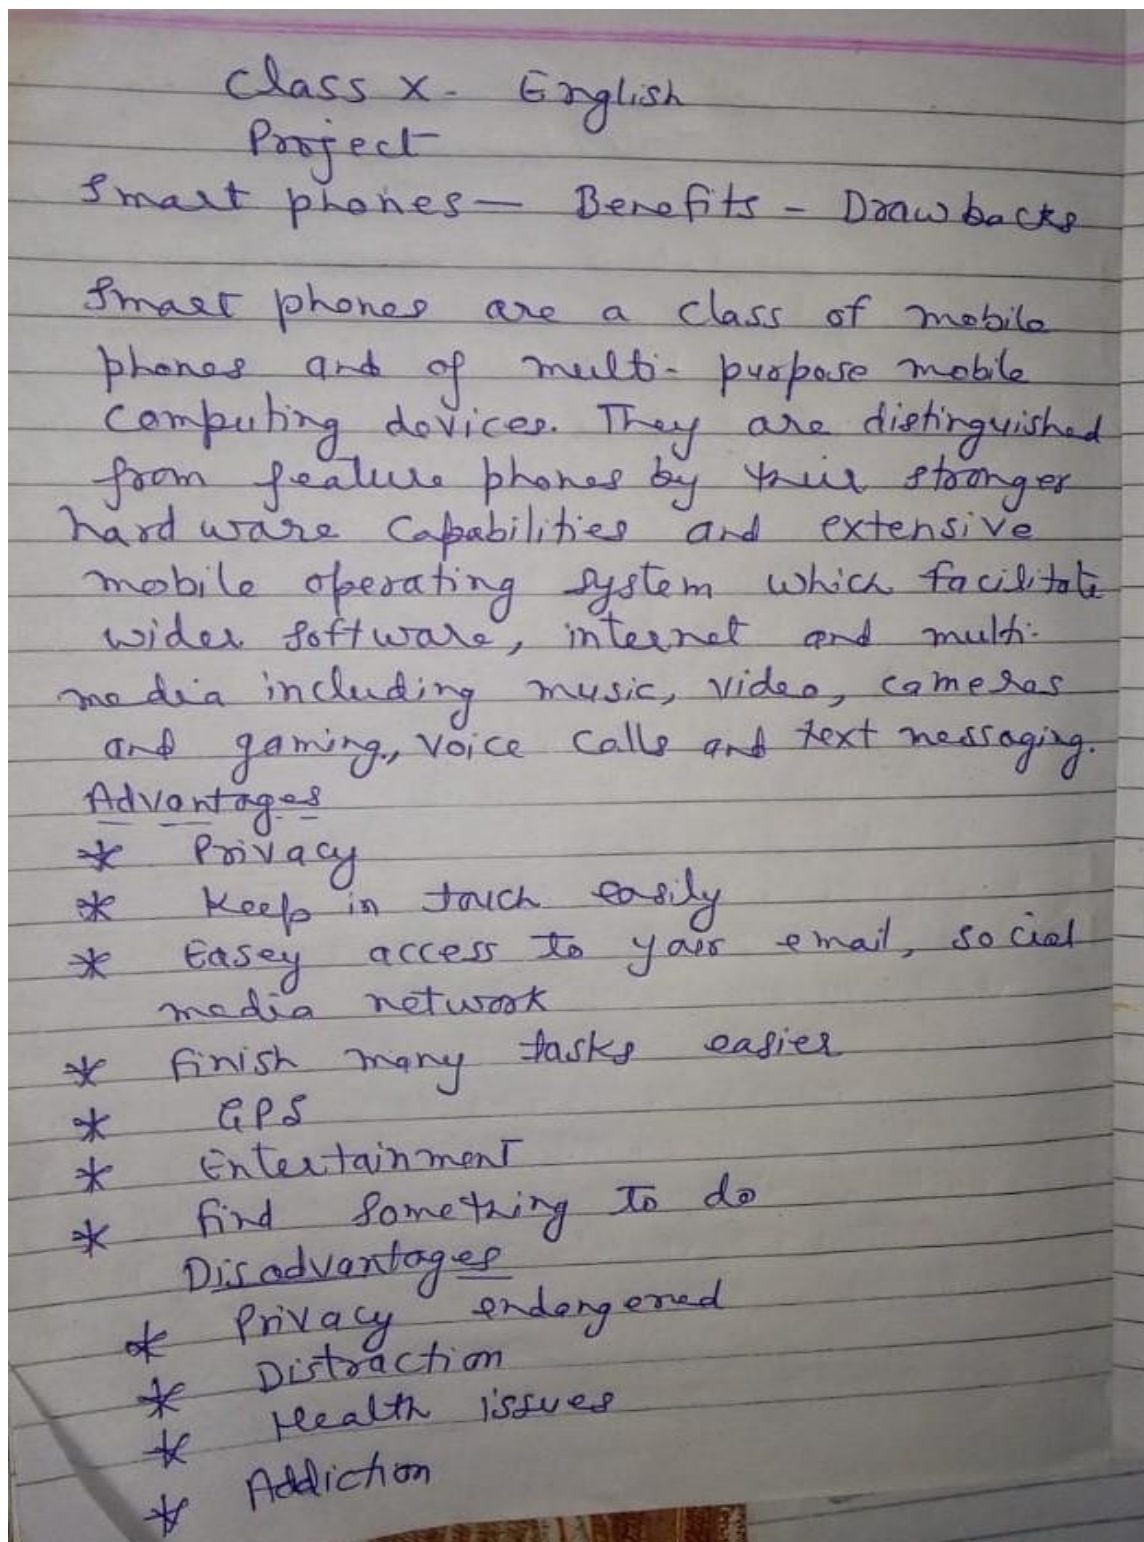 Class X - English
Project
Smart phones — Benefits - Drawbacks
Smart phones are a class of mobile
phones and of multi- purpose mobile
computing devices. They are distinguished
from feature phones by their stronger
hard ware capabilities and extensive
mobile operating system which facilitate
wider software, internet and multi-
media including music, video, cameras
and gaming, voice calls and text messaging.
Advantages
* Privacy
* Keep in touch easily
* Easey access to your email, social
media network
* finish many tasks easier
* GPS
* Entertainment
* find something to do
Disadvantages
* Privacy endangered
* Distraction
* Health issues
* Addiction